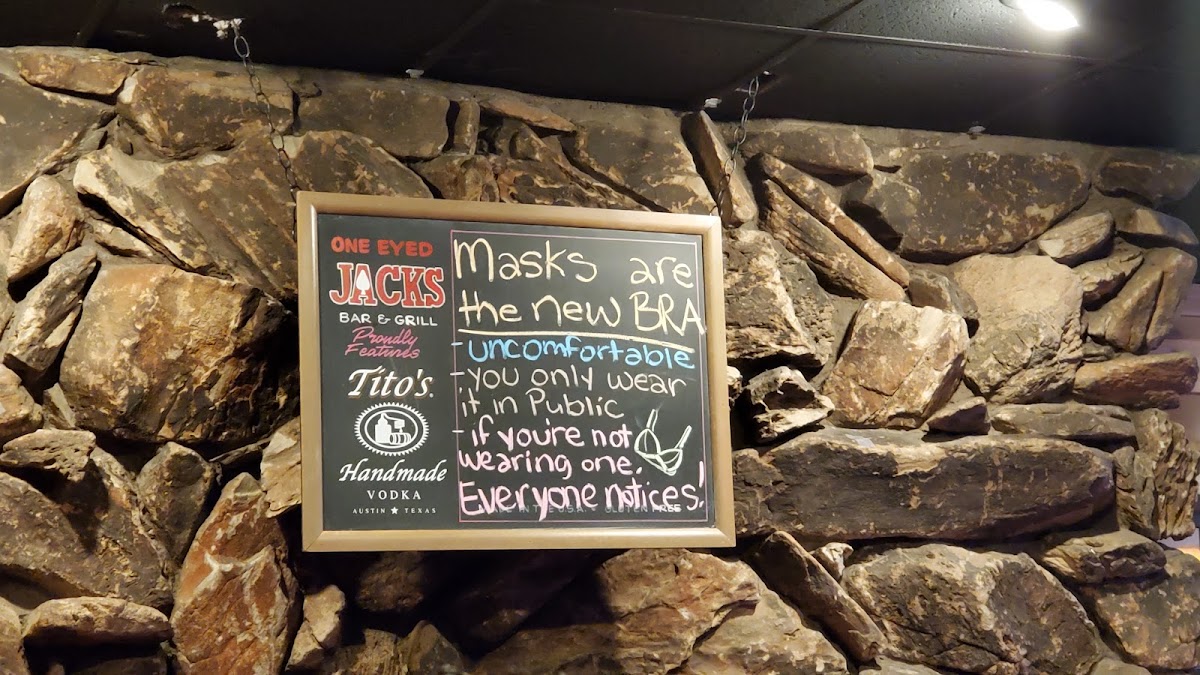 ONE EYED
JACKS
BAR & GRILL
Proudly
Features
Tito's.
Handmade
VODKA
AUSTIN ★ TEXAS
Masks are
the new BRA
- uncomfortable
- you only wear
it in Public
- if you're not
wearing one.
Everyone notices!
MADE IN THE U.S.A. • GLUTEN FREE